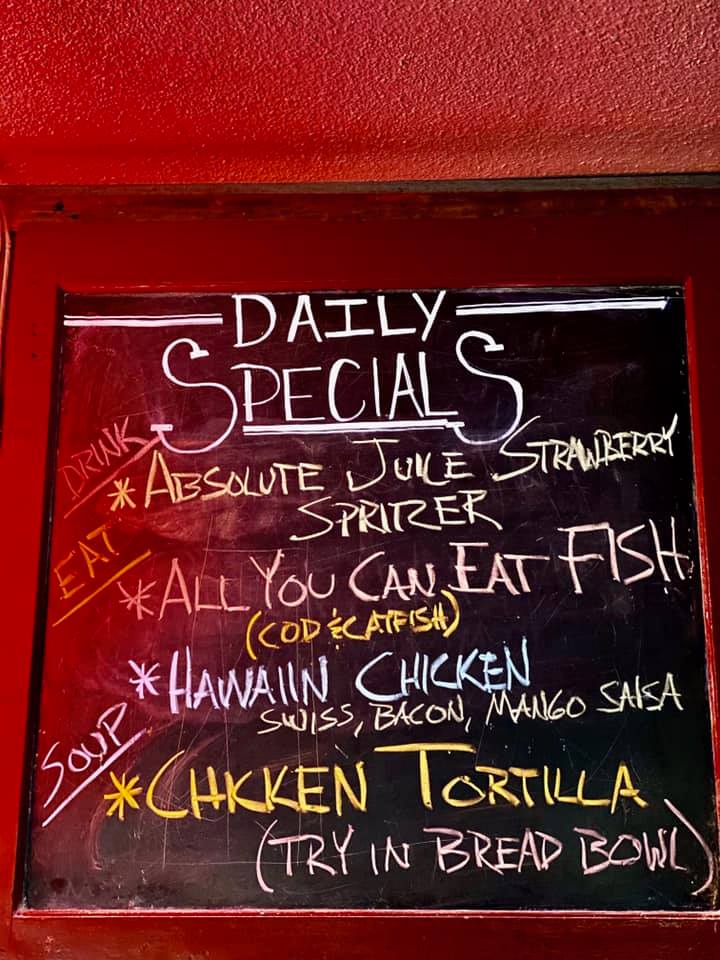 DAILY
SPECIALS
DRINK
*ABSOLUTE JUICE STRAWBERRY
SPRITZER
EAT
*ALL YOU CAN EAT FISH
(COD & CATFISH)
*HAWAIIN CHICKEN
SWISS, BACON, MANGO SALSA
SOUP
*CHICKEN TORTILLA
(TRY IN BREAD BOWL)